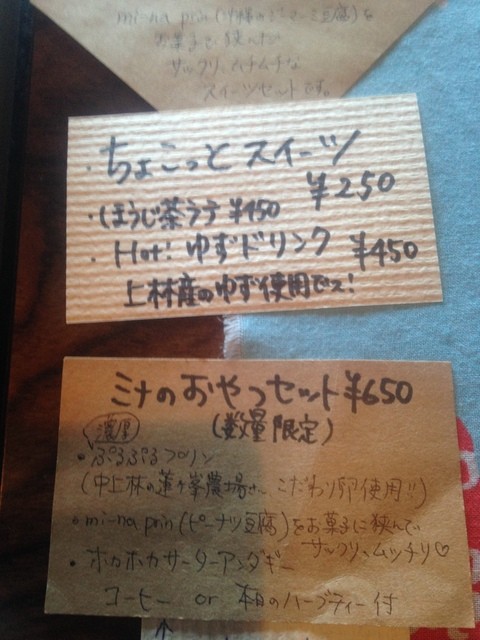 mi-na prin(沖縄のジーマーミ豆腐)を
お菓子で挟んだ
サックリ、ムチムチな
スイーツセットです。
・ちょこっと スイーツ
¥250
・ほうじ茶ラテ ¥450
・Hot! ゆずドリンク ¥450
上林産のゆず使用でス!
ミナのおやつセット ¥650
(数量限定)
濃厚
・ぷるぷるプリン
(中上林の蓮ヶ峯農場さん こだわり卵使用!!)
・mi-na prin(ピーナツ豆腐)をお菓子に挟んで
サックリ、ムッチリ♡
・ホカホカサーターアンダギー
コーヒー or 本日のハーブティー付